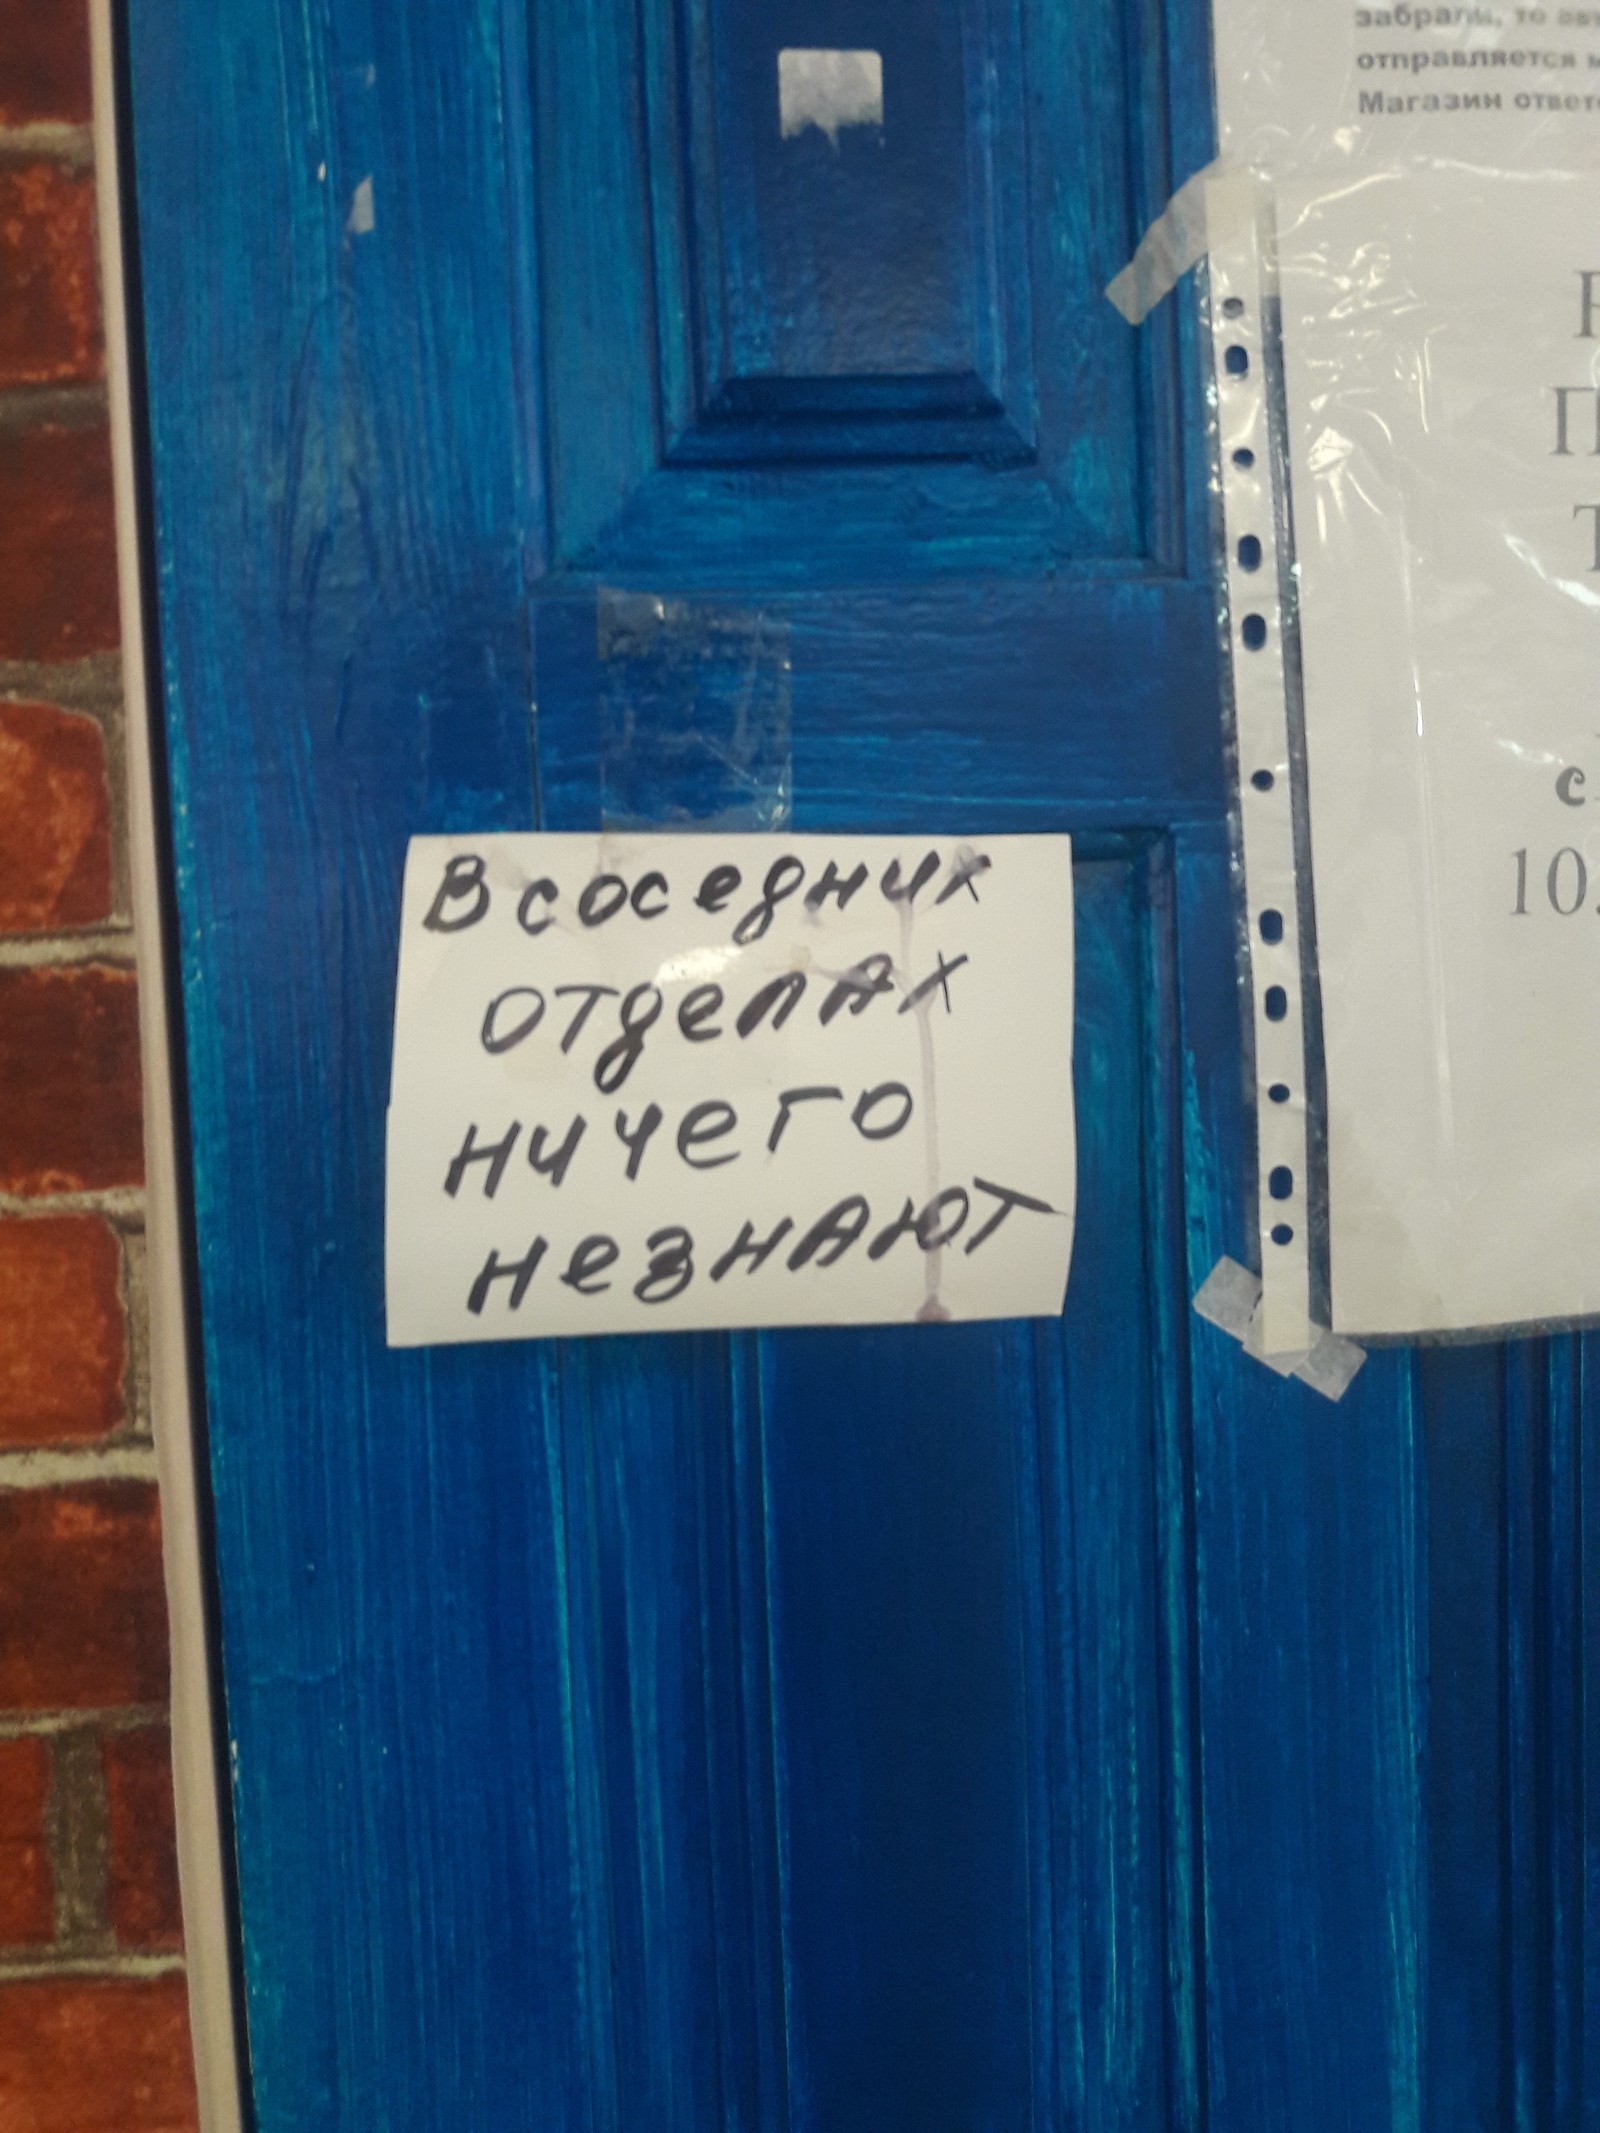 забрали, то
отправляется
Магазин
В соседних
отделах
ничего
незнают
с
10